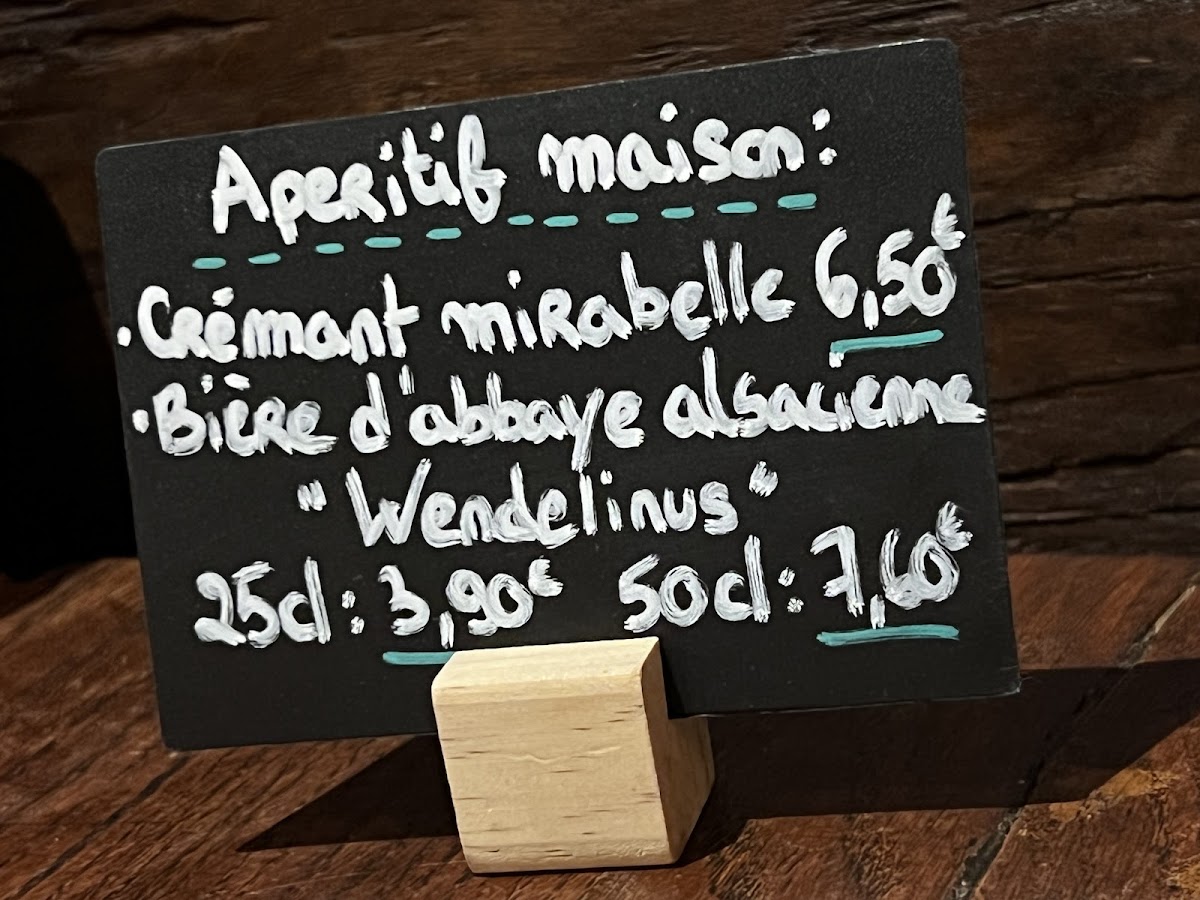 Aperitif maison :
• Crémant mirabelle 6,50€
• Bière d'abbaye alsacienne
"Wendelinus"
25cl : 3,90€ 50cl : 7,60€